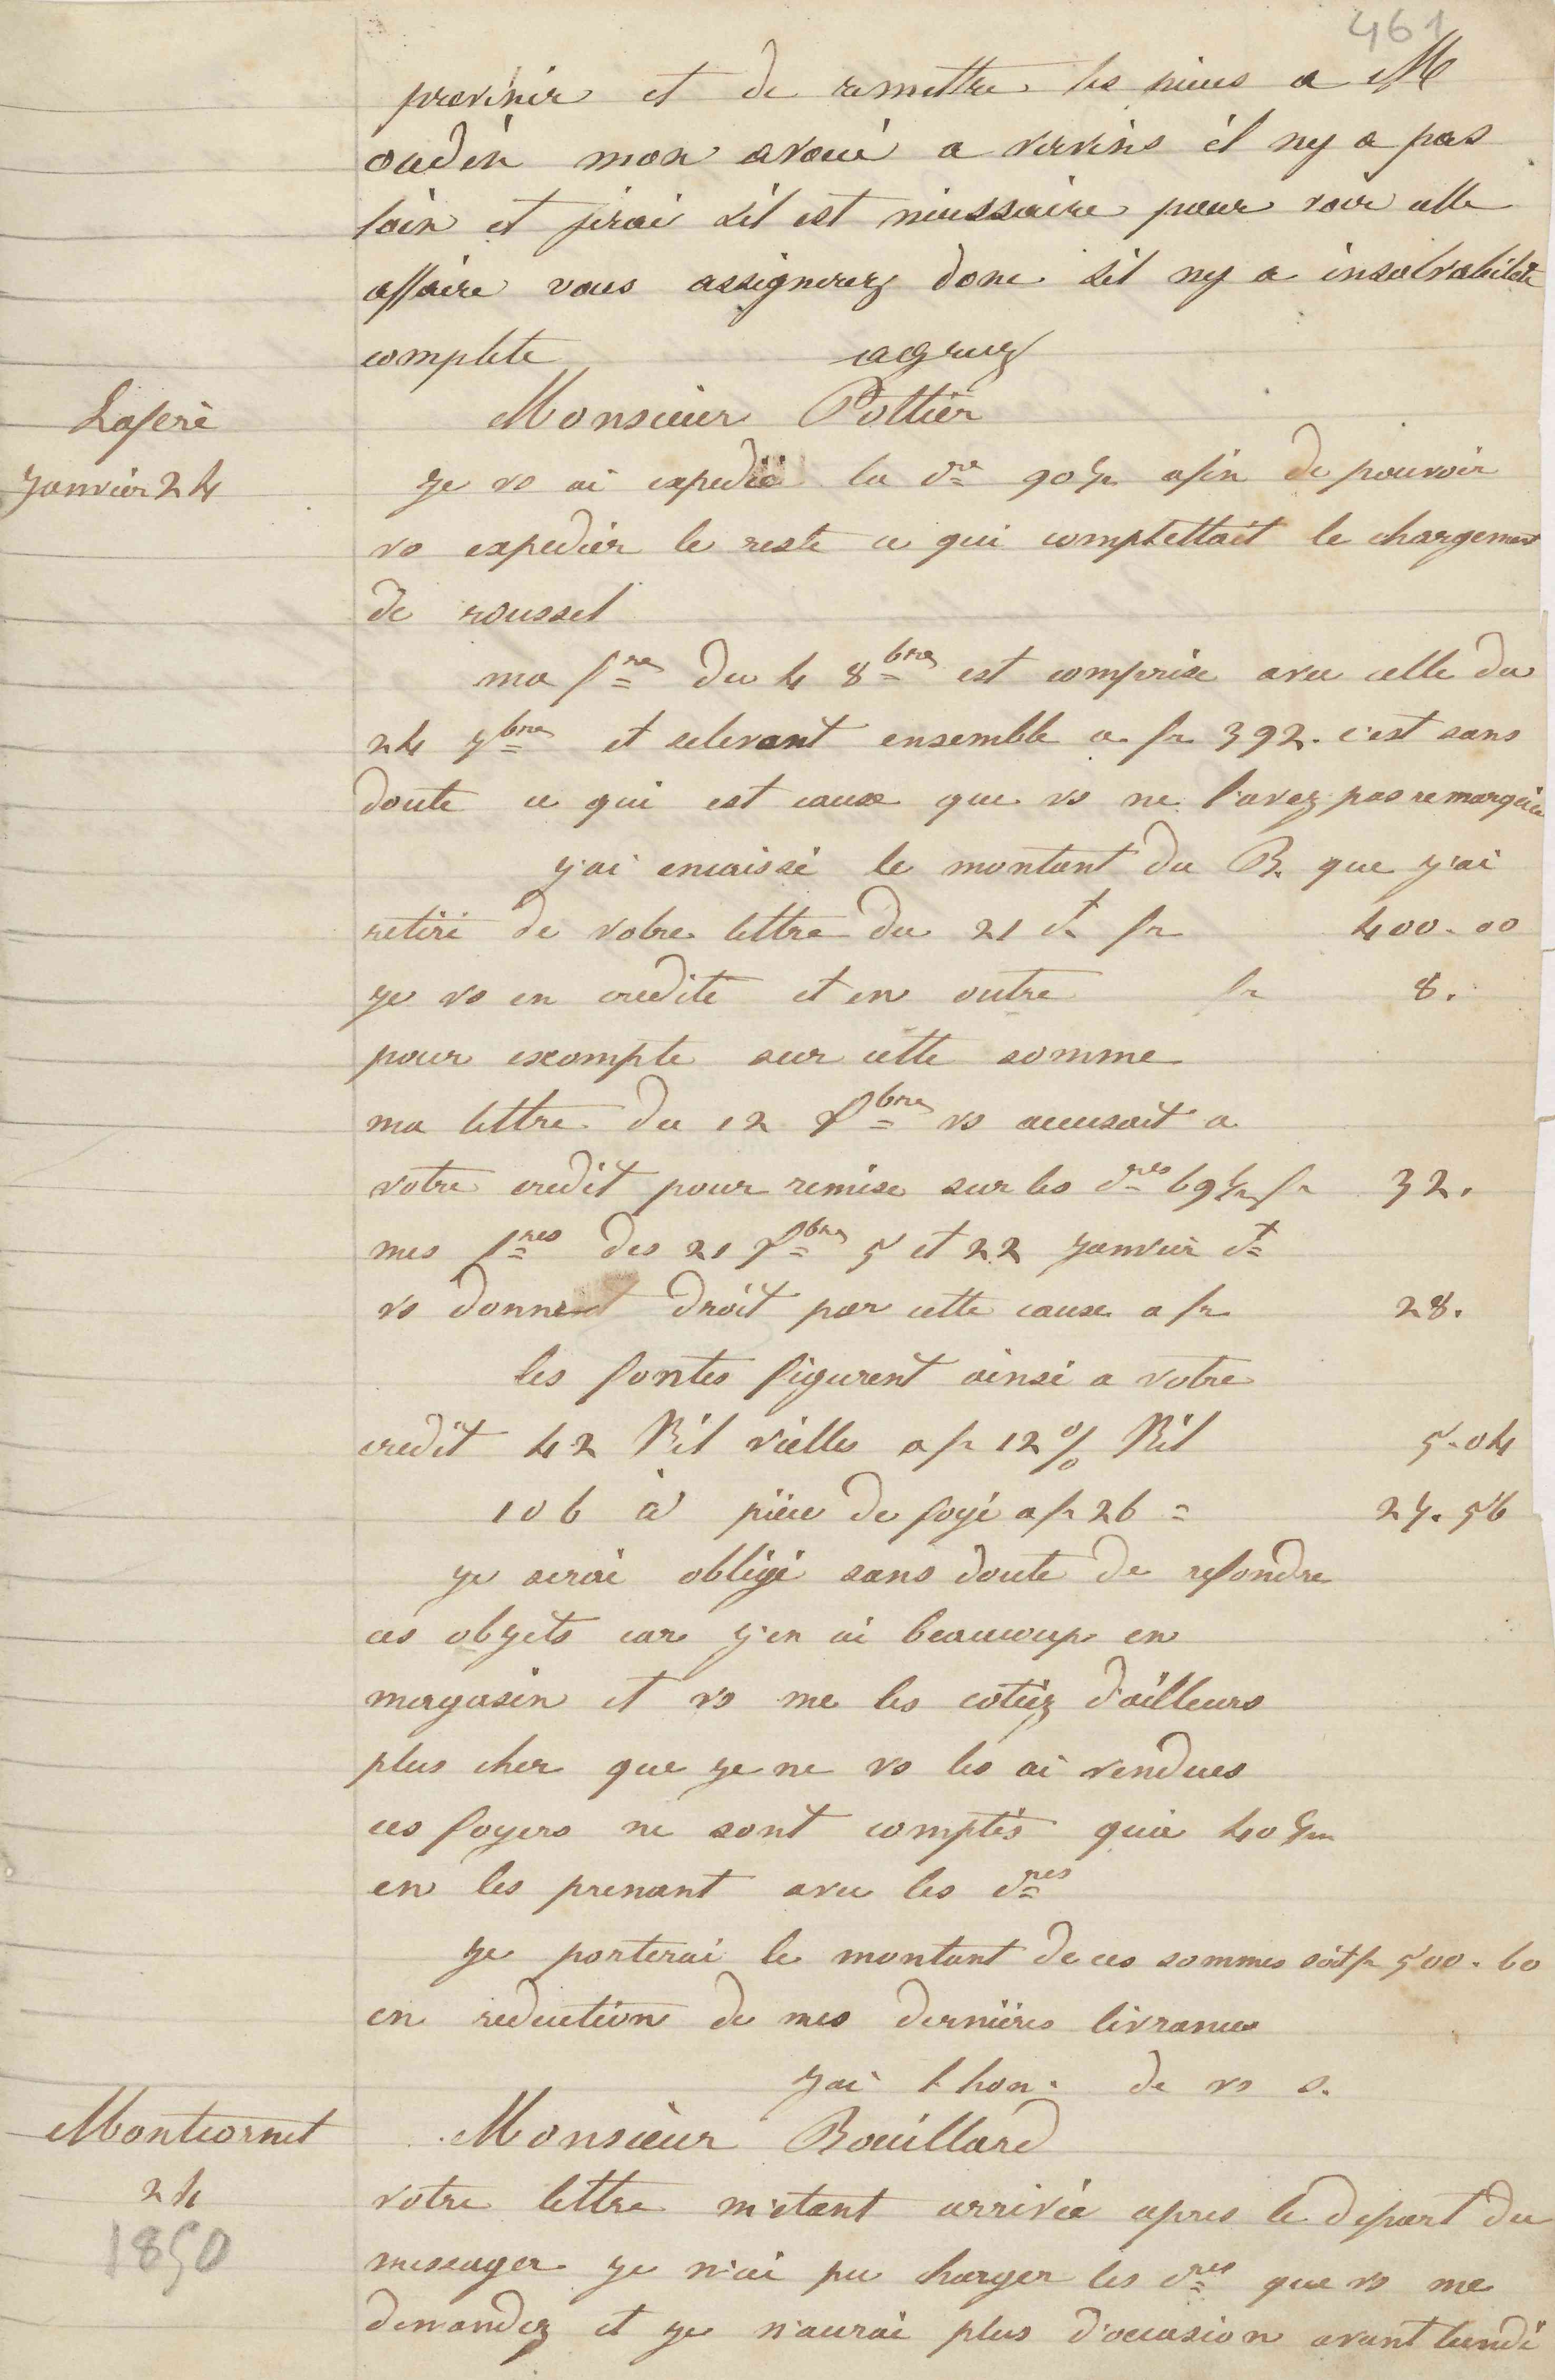 461
prevenir et de remettre les pieces a M
oudin mon avoué a vervins il ny a pas
loin et jirai s'il est niessaire pour voir cette
affaire vous assignerez donc s'il ny a insolvabilité
complete agreez
Laferè
Janvier 24
Monsieur Pottier
je vs ai expedié la dre 90 fr afin de pouvoir
vs expedier le reste ce qui complettait le chargement
de roussel
ma fre du 4 8bre est comprise avec celle du
24 7bre et selevant ensemble a fr 392. c'est sans
doute ce qui est cause que vs ne l'avez pas remarquée
j'ai encaissé le montant du B. que j'ai
retiré de votre lettre du 21 ct fr 400.00
je vs en credite et en outre fr 8.
pour escompte sur cette somme
ma lettre du 12 Xbre vs accusait a
votre credit pour remise sur les dres 69 fr 32.
mes fres des 21 Xbre 5 et 22 Janvier ct
vs donnent droit par cette cause a fr 28.
les fontes figurent ainsi a votre
credit 42 Kil vielles a fr 12 % Kil 5.04
106 d° piéce de foyé a fr 26 = 27.56
je serai obligé sans doute de refondre
ces objets car j'en ai beaucoup en
magasin et vs me les cotiez d'ailleurs
plus cher que je ne vs les ai vendues
ces foyers ne sont comptés qu'a 40 fr
en les prenant avec les dres
je porterai le montant de ces sommes soit fr 500.60
en reduction de mes dernieres livrances
j'ai l hon. de vs s.
Montcornet
24
1850
Monsieur Bouillard
votre lettre m'etant arrivée apres le depart du
messager je n'ai pu charger les dres que vs me
demandez et je n'aurai plus d'occasion avant lundi